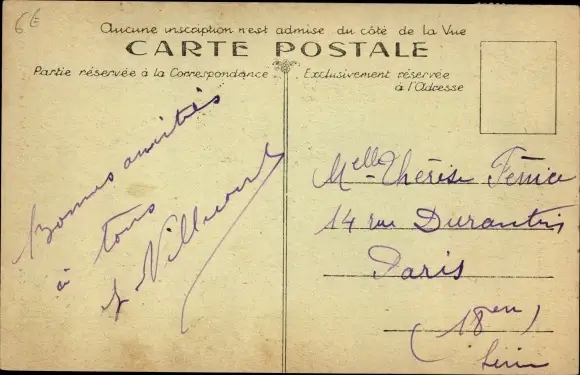 6€
Aucune inscription n'est admise du côté de la Vue
CARTE POSTALE
Partie réservée à la Correspondance
Exclusivement réservée
à l'Adresse
Bonnes amitiés
à tous
Melle Thérèse
14 rue Durantin
Paris
(18en)
Seine